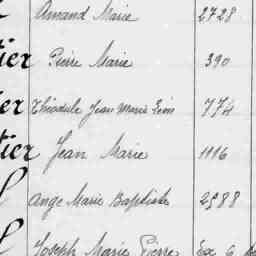 Amand Marie 2728
tier Pierre Marie 390
er Théodule Jean Marie 774
tier Jean Marie 1116
l Ange Marie Baptiste 2588
Joseph Marie Pierre